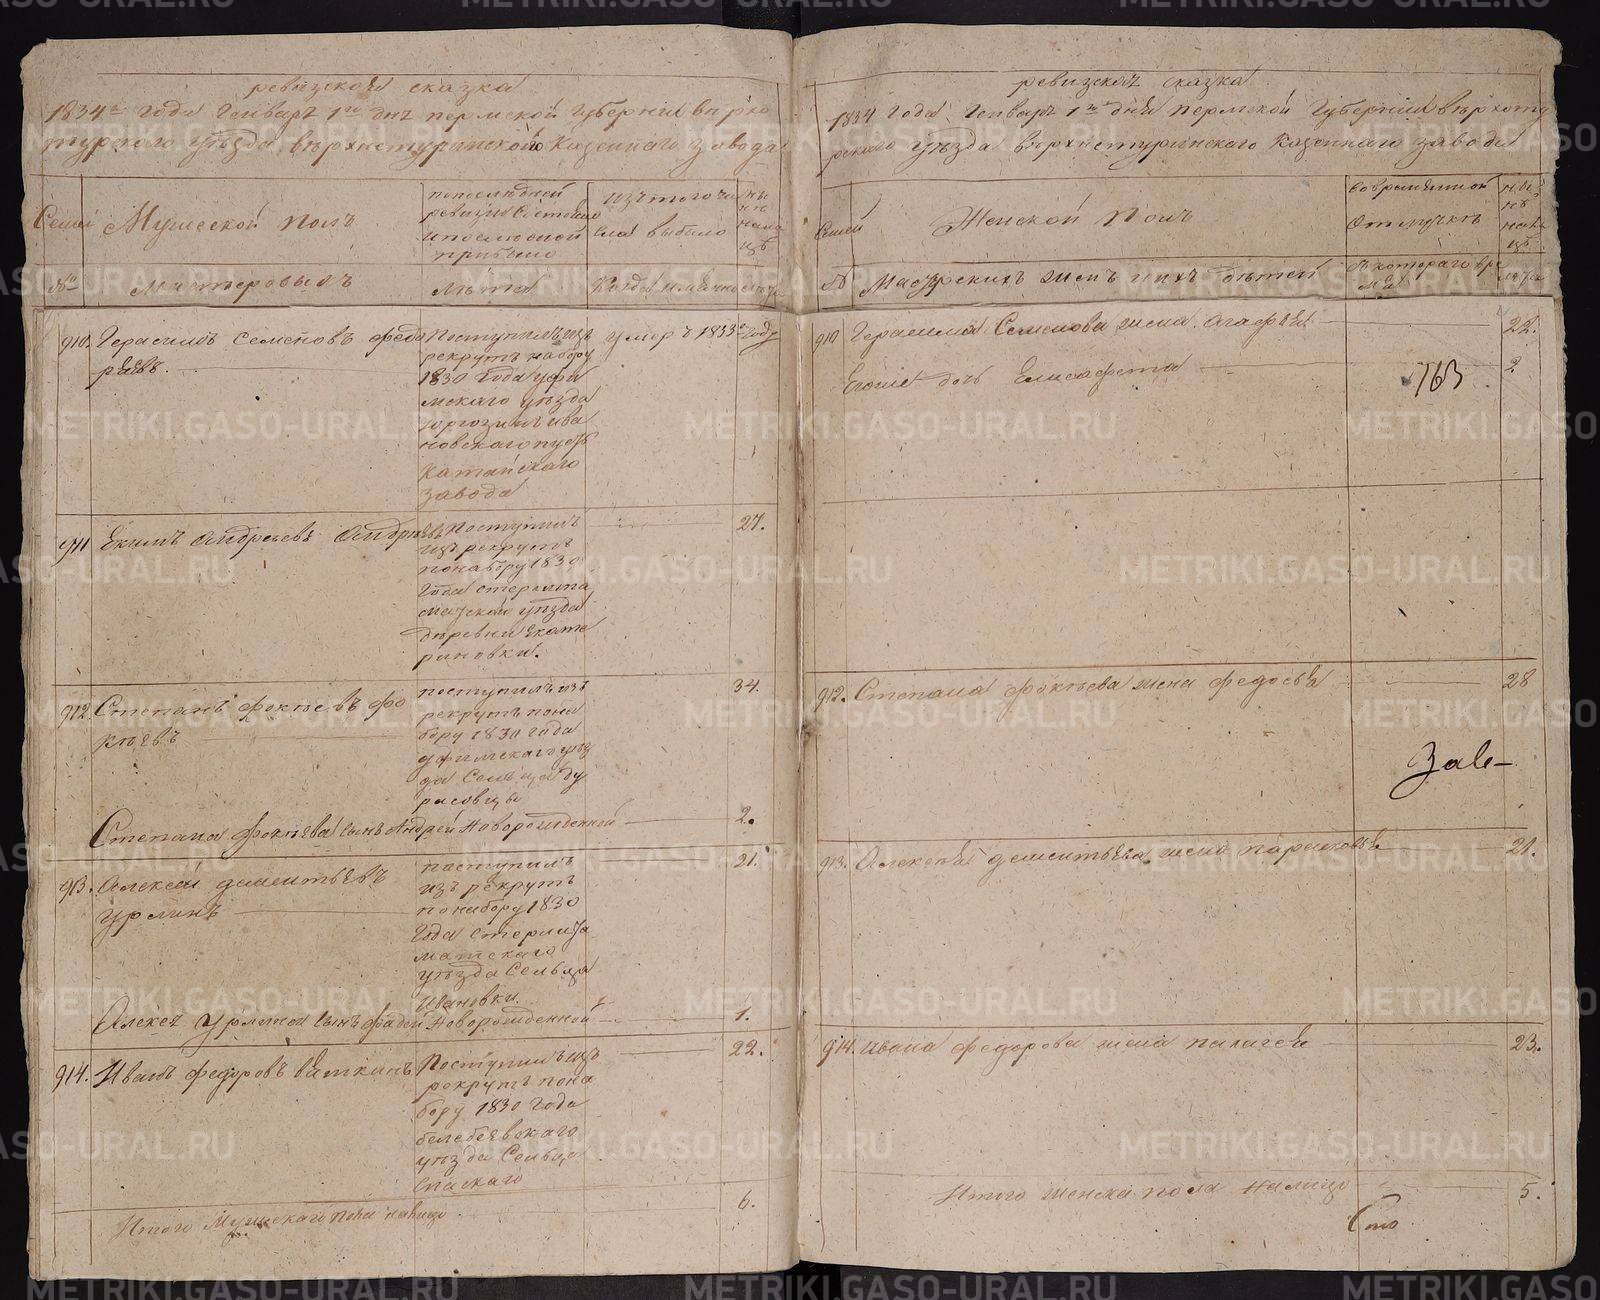 ревизская сказка
1834го года Генваря 1го дня пермской губернии верхо
турского уезда, верхнетуринского Казеннаго завода
Семей
Мужеской полъ
попоследней
ревизии Состояло
и после оной
прибыло
изъ того чи
сла выбыло
ны
не
на ли
це
№
Мастеровыхъ
лета
Когда имянно
лета
910. Герасимъ Семеновъ федо
ревъ.
Поступилъ изъ
рекрутъ набору
1830 года уфи
мскаго уезда
новскаго
Катайскаго
завода
умеръ 1833го году
911 Екимъ Андреевъ Андреевъ
Поступилъ
изъ рекрутъ
понабору 1830
года стерлита
матской уезда
деревни Екате
риновки.
27.
912. Степанъ фокеевъ фо
кеевъ
поступилъ изъ
рекрутъ пона
бору 1830 года
уфимскаго уез
да Сельца Ду
расовцы
34.
Степана фокеева сынъ Андрей Новорожденной
2.
913. Алексей дементьевъ
Урлинъ
поступилъ
изъ рекрутъ
понабору 1830
года стерлита
матскаго
уезда Сельца
Ивановки.
21.
Алексея Урлина сынъ фадей Новорожденной
1.
914. Иванъ федоровъ вяткинъ
Поступилъ изъ
рекрутъ пона
бору 1830 года
белебеевскаго
уезда Сельца
Спаскаго
22.
Итого Мужескаго пола налицо
6.
ревизская сказка
1834 года Генваря 1го дня пермской Губернии верхоту
рскаго уезда верхнетуринскаго Казеннаго завода
Семей
Женской Полъ
во временной
отлучке
ны
не
на ли
це
№
Мастерскихъ женъ и ихъ детей
съ котораго вре
мя
лета
910 Герасима Семенова жена Агафья
22.
Егоже дочь Елисафета
763
2
912. Степана фокеева жена федосья
28
Заве-
913. Алексея дементьева жена парасковья
21.
914. Ивана федорова жена палагея
23.
Итого женска пола налицо
5.
METRIKI.GASO-URAL.RU